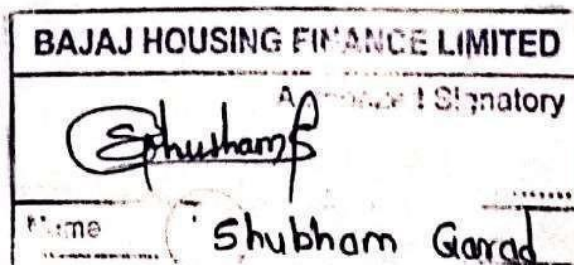 BAJAJ HOUSING FINANCE LIMITED
Signatory
Shubham
Name Shubham Garad